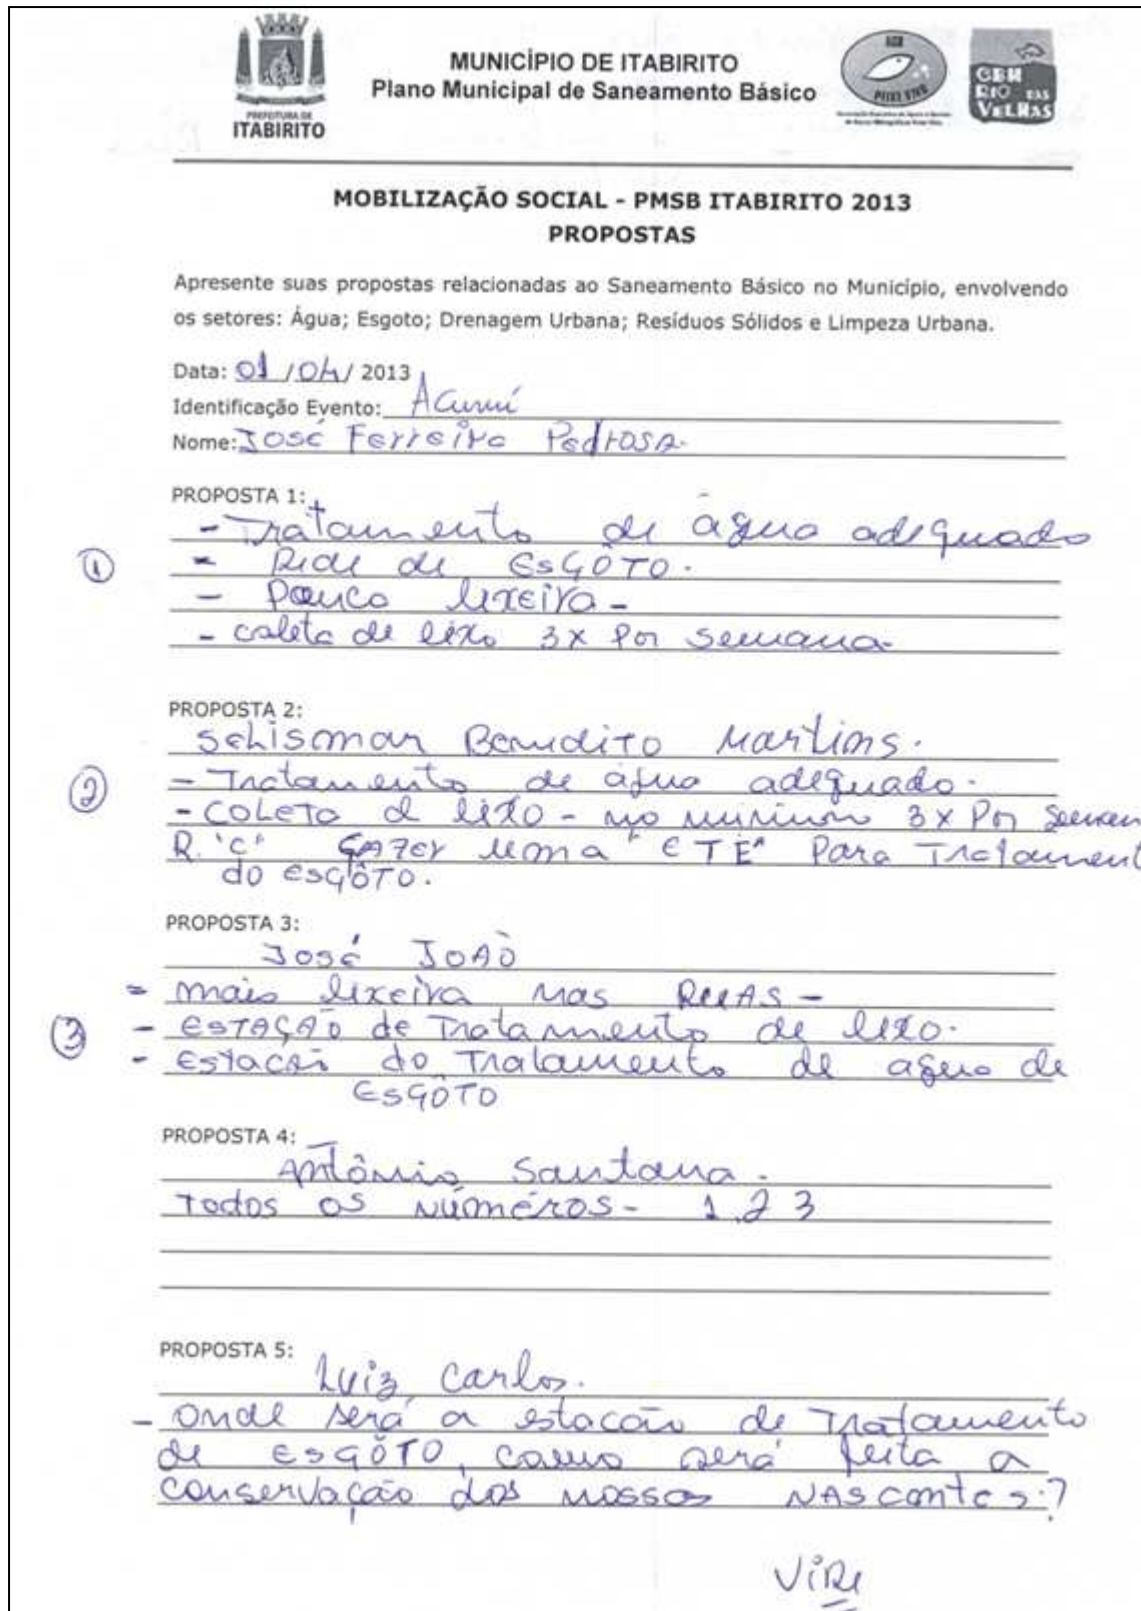 PREFEITURA DE
ITABIRITO
MUNICÍPIO DE ITABIRITO
Plano Municipal de Saneamento Básico
AGB
PEIXE VIVO
CBH
RIO DAS
VELHAS
MOBILIZAÇÃO SOCIAL - PMSB ITABIRITO 2013
PROPOSTAS
Apresente suas propostas relacionadas ao Saneamento Básico no Município, envolvendo
os setores: Água; Esgoto; Drenagem Urbana; Resíduos Sólidos e Limpeza Urbana.
Data: 01/04/ 2013
Identificação Evento: Acuruí
Nome: José Ferreira Pedrosa.
PROPOSTA 1:
- Tratamento de água adequado
① - Rede de EsGÔTO.
- Pouco lixeira -
- coleta de lixo 3x Por semana-
PROPOSTA 2:
Benedito Martins.
② - Tratamento de água adequado.
- COLETA d lixo - no minimo 3x Por
R. "C" FAZER uma "ETE" Para Tratament
do esGôTO.
PROPOSTA 3:
José JOÃO
- mais lixeira nas RUAS -
③ - ESTAÇÃO de Tratamento de lixo.
- Estação do Tratamento de água de
EsGÔTO
PROPOSTA 4:
Antônio Santana.
Todos os números - 1 2 3
PROPOSTA 5:
Luiz Carlos.
- onde será a estação de Tratamento
de EsGÔTO, como será feita a
conservação dos nossos NAScentes?
ViRe